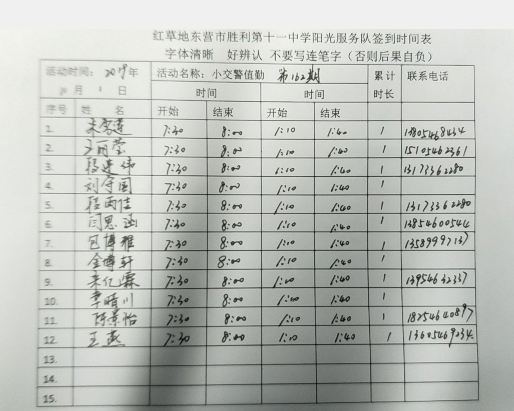 红草地东营市胜利第十一中学阳光服务队签到时间表
字体清晰 好辨认 不要写连笔字（否则后果自负）
活动时间：2019年 月 日 活动名称：小交警值勤 第162期 累计时长 联系电话
时间 时间
序号 姓名 开始 结束 开始 结束
1. 7:30 8:00 1:10 1:40 1
2. 7:30 8:00 1:10 1:40 1 15105462361
3. 程建伟 7:30 8:00 1:10 1:40 1 13173362280
4. 刘守国 7:30 8:00 1:10 1:40 1
5. 程雨佳 7:30 8:00 1:10 1:40 1 13173362280
6. 闫思涵 7:30 8:00 1:10 1:40 1 13854600544
7. 包博雅 7:30 8:00 1:10 1:40 1
8. 金博轩 7:30 8:00 1:10 1:40 1
9. 7:30 8:00 1:10 1:40 1
10. 李晴川 7:30 8:00 1:10 1:40 1
11. 陈景怡 7:30 8:00 1:10 1:40 1
12. 王燕 7:30 8:00 1:10 1:40 1
13.
14.
15.